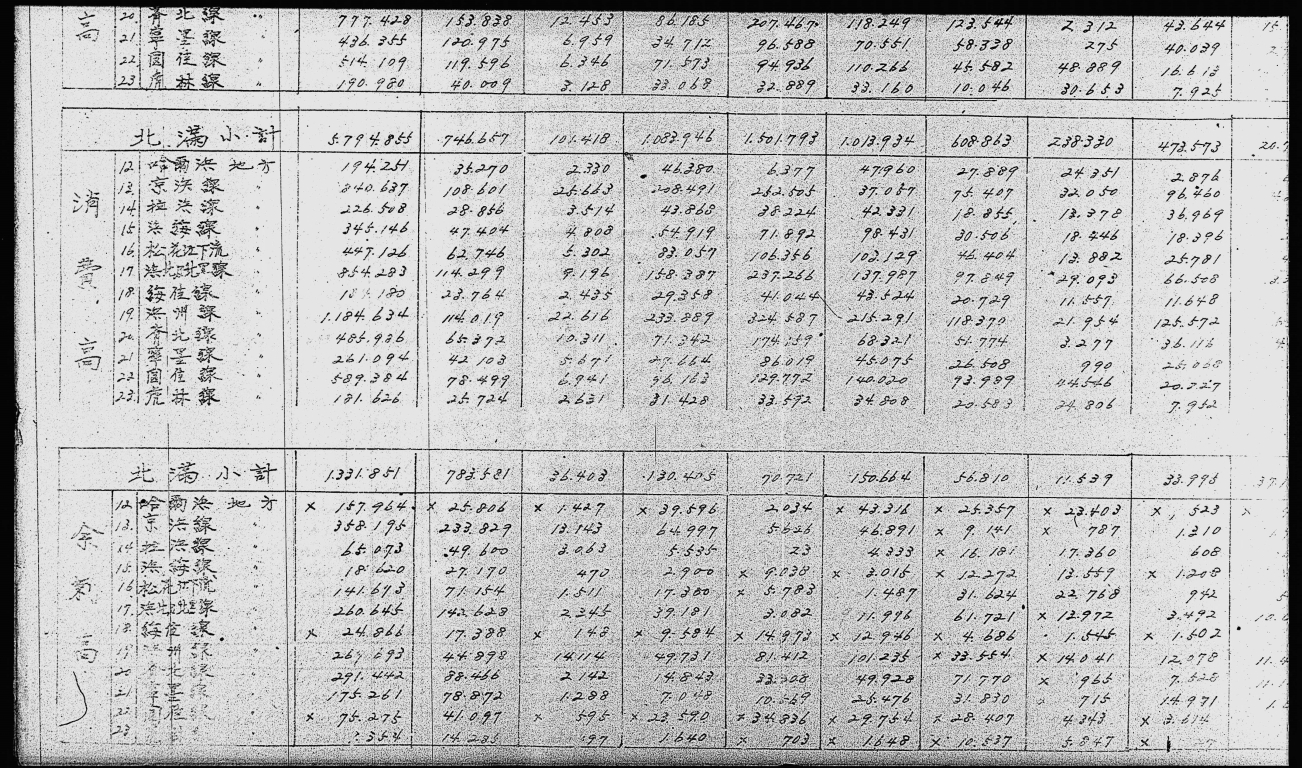 高 20. 齊北線 〃 777.428 153.838 12.453 86.185 207.467 118.249 123.544 2.312 43.644 15
21 寧墨線 〃 436.355 120.975 6.959 34.712 96.588 70.551 58.338 275 40.039
22 図佳線 〃 514.109 119.596 6.346 71.573 94.936 110.266 45.582 48.889 16.613
23 虎林線 〃 190.980 40.009 3.128 33.068 32.889 33.160 10.046 30.653 7.925
北滿小計 5.794.855 746.657 101.418 1.083.946 1.501.793 1.013.934 608.863 238.330 473.573
消費高
12. 哈爾浜地方 194.251 35.270 2.330 46.380 6.377 47.960 27.889 24.351 2.876
13. 京浜線 〃 840.637 108.601 25.663 208.491 252.505 37.057 75.407 32.050 96.460
14. 拉浜線 〃 226.508 28.856 3.514 43.868 38.224 42.331 18.855 13.378 36.969
15 浜綏線 〃 345.146 47.404 4.808 54.919 71.892 98.431 30.506 18.446 18.396
16 松花江下流 〃 447.126 62.746 5.302 83.057 106.356 103.129 46.404 13.882 25.781
17 浜北線 〃 854.283 114.299 9.196 158.387 237.266 137.987 97.849 29.093 66.508
18. 綏佳線 〃 180 23.764 2.435 29.358 41.044 43.524 20.729 11.557 11.648
19. 浜州線 〃 1.184.634 114.019 22.616 233.889 324.587 215.291 118.370 21.954 125.572
20. 齊北線 〃 485.986 65.372 10.311 71.342 174.159 68.321 51.774 3.277 36.116
21 寧墨線 〃 261.094 42.103 5.671 27.664 86.019 45.075 26.508 990 25.068
22 図佳線 〃 589.384 78.499 6.941 96.163 129.772 140.020 93.989 44.546 20.227
23. 虎林線 〃 181.626 25.724 2.631 31.428 33.592 34.808 20.583 24.806 7.952
北滿小計 1.331.851 783.581 36.403 130.405 70.721 150.664 56.810 11.539 33.995
余剰高
12. 哈爾浜地方 × 157.964 × 25.806 × 1.427 × 39.596 2034 × 43.316 × 25.357 × 23.403 × 523 ×
13. 京浜線 〃 358.195 233.829 13.143 64.997 5.626 46.891 × 9.141 × 787 1.310
14 拉浜線 〃 65.073 49.600 3.063 5.535 23 4.333 × 16.181 17.360 608
15 浜綏線 〃 18.620 27.170 470 2.900 × 9.038 × 3.015 × 12.272 13.559 × 1.208
16 松花江下流 〃 141.693 71.154 1.511 17.300 × 5.783 1.487 31.624 22.768 942
17. 浜北線 〃 260.645 142.628 2.345 39.181 3.082 11.996 61.721 × 12.972 3.492
18. 綏佳線 〃 × 24.866 17.388 × 148 × 9.584 × 14.973 × 12.946 × 4.686 1.545 × 1.502
19 州線 〃 267.693 44.898 14.114 49.731 81.412 101.235 × 33.554 × 14.041 12.078
20 北線 〃 291.442 88.466 2.142 14.843 33.308 49.928 71.770 × 965 7.528
21 墨線 〃 175.261 78.872 1.288 7.048 10.569 25.476 31.830 × 715 14.971
22 線 〃 × 75.275 41.097 × 595 × 23.590 × 34.836 × 29.754 × 28.407 4.343 × 3.614
23 〃 354 14.285 97 1.640 × 703 × 1.648 × 10.537 5.847 ×